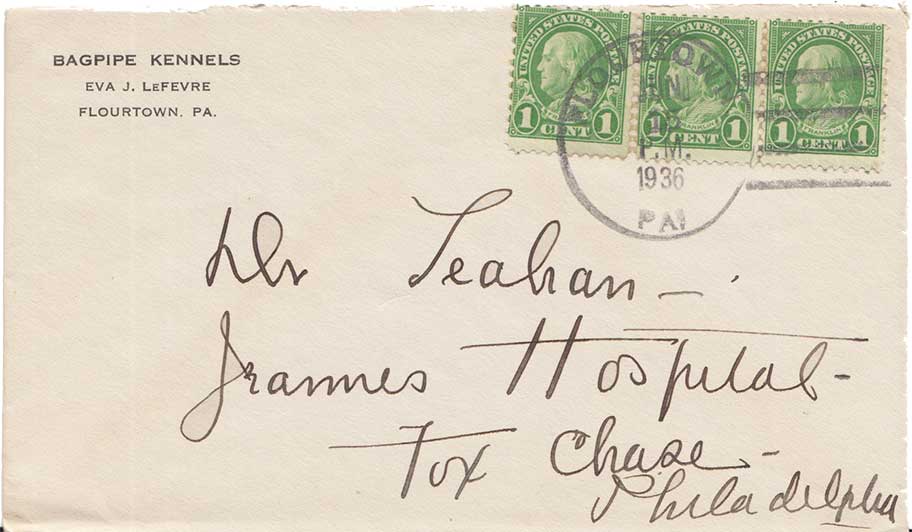 BAGPIPE KENNELS
EVA J. LEFEVRE
FLOURTOWN. PA.
UNITED STATES POSTAGE
FRANKLIN
1 CENT 1
UNITED STATES POSTAGE
FRANKLIN
1 CENT 1
UNITED STATES POSTAGE
FRANKLIN
1 CENT 1
FLOURTOWN
P.M.
1936
PA
Dr Teahan –
Jeannes Hospital –
Fox Chase –
Philadelphia